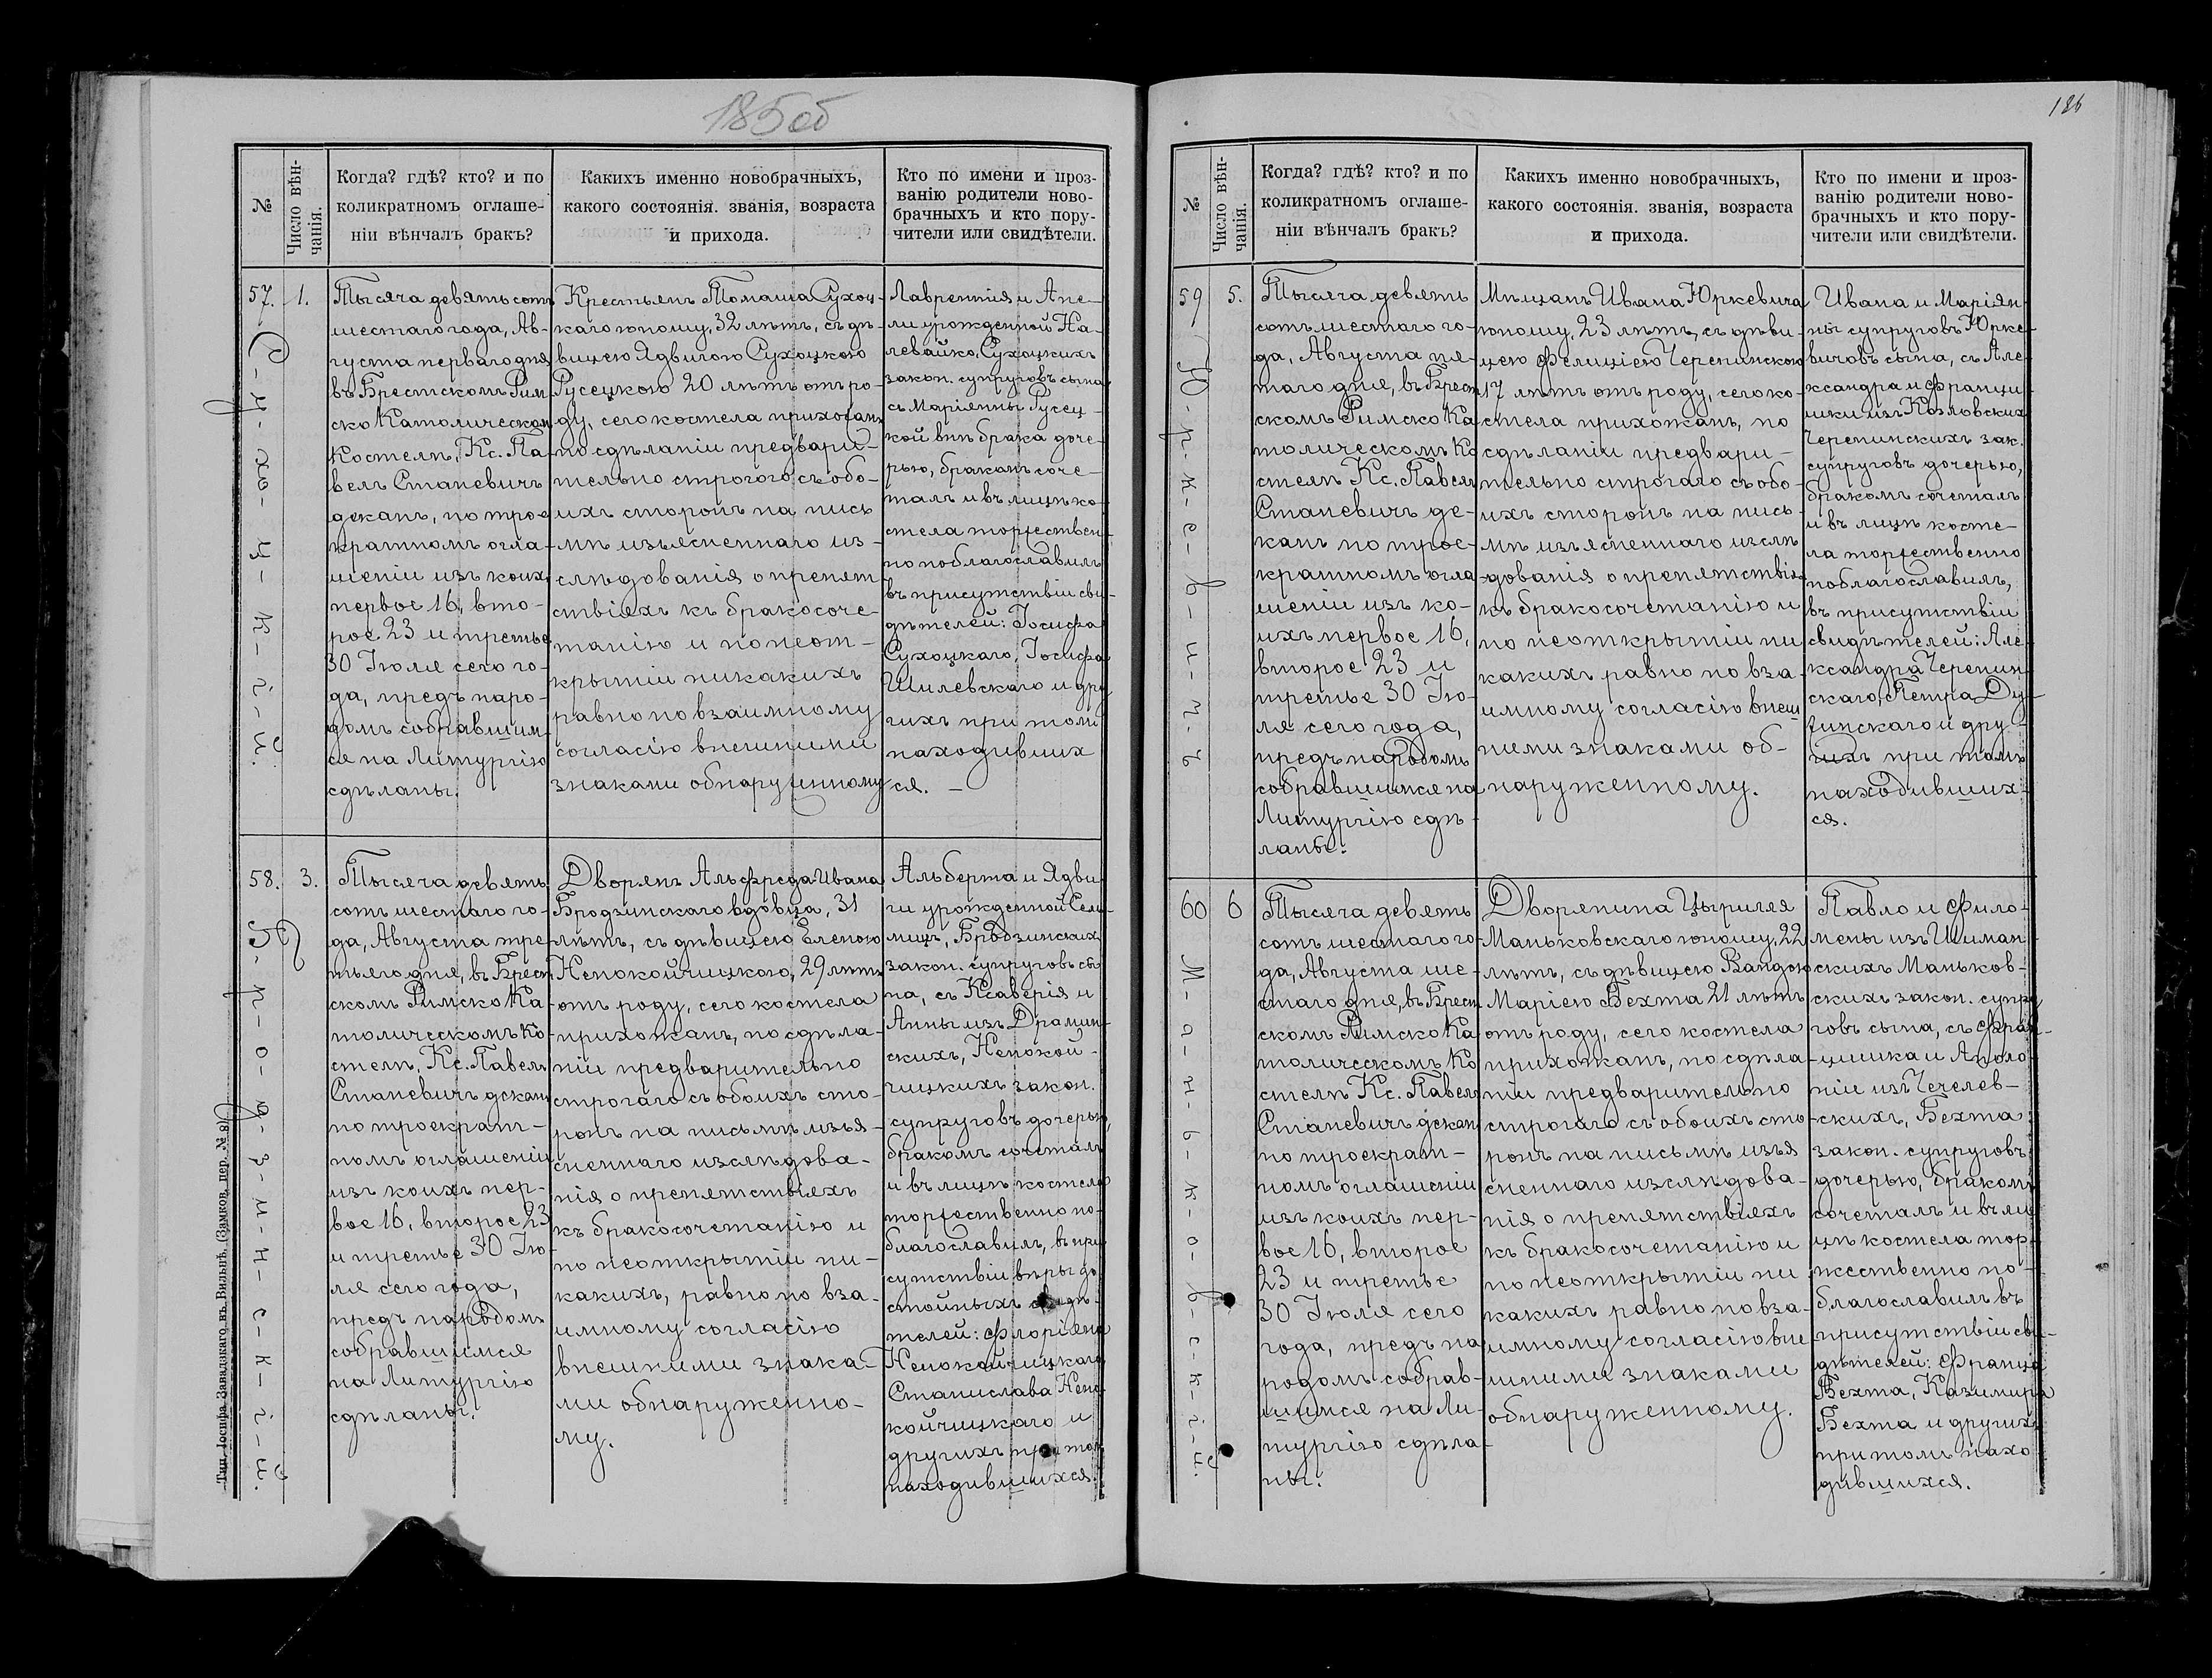 185об
№
Число вѣн-
чанія.
Когда? гдѣ? кто? и по
коликратномъ оглаше-
ніи вѣнчалъ бракъ?
Какихъ именно новобрачныхъ,
какого состоянія. званія, возраста
и прихода.
Кто по имени и проз-
ванію родители ново-
брачныхъ и кто пору-
чители или свидѣтели.
57.
1.
С-у-хо-ц-к-і-й.
Тысяча девятьсотъ
шестаго года, Ав-
густа перваго дня
въ Брестскомъ Рим
ско Католическом
Костелѣ, Кс. Па-
велъ Станевичъ
деканъ, по трое
кратномъ огла-
шеніи изъ коихъ
первое 16, вто-
рое 23 и третье
30 Іюля сего го-
да, предъ наро-
домъ собравшим-
ся на Литургію
сдѣланы.
Крестьянъ Томаша Сухоц-
каго юношу, 32 лѣтъ, съ дѣ-
вицею Ядвигою Сухоцкою
Русецкою 20 лѣтъ отъ ро-
ду, сего костела прихожанъ
по сдѣланіи предвари-
тельно строгого съ обо-
ихъ сторонъ на пись
мѣ изъясненнаго из-
слѣдованія о препят
ствіяхъ къ бракосоче
танію и по неот-
крытіи никакихъ
равно по взаимному
согласію внешними
знаками обнаруженному
Лаврентія и Апе-
ли урожденной На-
левайко, Сухоцкихъ
закон. супруговъ сына
съ Маріянны Русец-
кой внѣ брака доче-
рью, бракомъ соче-
талъ и въ лицѣ ко-
стела торжествен-
но поблагославилъ
въ присутствіи сви-
дѣтелей: Іосифа
Сухоцкаго, Іосифа
Шилевскаго и дру
гихъ при томъ
находивших
ся. -
58.
3.
Б-р-о-д-з-и-н-с-к-і-й.
Тысяча девять
сотъ шестаго го-
да, Августа тре-
тьяго дня, въ Брест
скомъ Римско Ка
толическомъ Ко-
стелѣ, Кс. Павелъ
Станевичъ деканъ
по троекрат-
номъ оглашеніи
изъ коихъ пер-
вое 16, второе 23
и третье 30 Ію-
ля сего года,
предъ народомъ
собравшимся
на Литургію
сдѣланы.
Дворянъ Альфреда-Ивана
Бродзинскаго вдовца, 31
лѣтъ, съ дѣвицею Еленою
Непокойчицкою, 29 лѣтъ
отъ роду, сего костела
прихожанъ, по сдѣла-
ніи предварительно
строгаго съ обоихъ сто-
ронъ на письмѣ изъя-
сненнаго изслѣдова-
нія о препятствіяхъ
къ бракосочетанію и
по неоткрытіи ни-
какихъ, равно по вза-
имному согласію
внешними знака-
ми обнаруженно-
му.
Альберта и Ядви
ги урожденной
Бродзинских
закон. супруговъ сы
на, съ Ксаверія и
Анны изъ Драмин-
скихъ, Непокой-
чицкихъ закон.
супруговъ дочерью,
бракомъ сочеталъ
и въ лицѣ костела
торжественно по-
благославилъ, въ при
сутствіи вѣры до
стойныхъ свидѣ-
телей: Флоріяна
Непокойчицкаго
Станислава Непо-
койчицкаго и
другихъ при томъ
находившихся.
Тип. Іосифа Завадзкаго въ Вильнѣ. (Замков. пер. № 8).
186
№
Число вѣн-
чанія.
Когда? гдѣ? кто? и по
коликратномъ оглаше-
ніи вѣнчалъ бракъ?
Какихъ именно новобрачныхъ,
какого состоянія. званія, возраста
и прихода.
Кто по имени и проз-
ванію родители ново-
брачныхъ и кто пору-
чители или свидѣтели.
59
5.
Ю-р-к-е-в-и-ч-ъ
Тысяча девять
сотъ шестаго го-
да, Августа пя-
таго дня, въ Брест
скомъ Римско Ка
толическомъ Ко
стелѣ Кс. Павелъ
Станевичъ де-
канъ по трое-
кратномъ огла
шеніи изъ ко-
ихъ первое 16,
второе 23 и
третье 30 Ію-
ля сего года,
предъ народомъ
собравшимся на
Литургію сдѣ-
ланы.
Мѣщанъ Ивана Юркевича
юношу, 23 лѣтъ, съ дѣви-
цею Фелиціею Черепинскою
17 лѣтъ отъ роду, сего ко-
стела прихожанъ, по
сдѣланіи предвари-
тельно строгаго съ обо-
ихъ сторонъ на пись-
мѣ изъясненнаго изслѣ
дованія о препятствіях
къ бракосочетанію и
по неоткрытіи ни
какихъ равно по вза-
имному согласію внеш
ними знаками об-
наруженному.
Ивана и Маріян
ны супруговъ Юрке
вичовъ сына, съ Але
ксандра и Франци-
шки изъ Козловских
Черепинскихъ зак.
супруговъ дочерью,
бракомъ сочеталъ
и въ лицѣ косте-
ла торжественно
поблагославилъ,
въ присутствіи
свидѣтелей: Але-
ксандра Черепин
скаго, Петра Ду-
жинскаго и дру-
гихъ при томъ
находивших-
ся.
60
6
М-а-н-ь-к-о-в-с-к-і-й.
Тысяча девять
сотъ шестаго го-
да, Августа ше-
стаго дня, въ Брест
скомъ Римско Ка
толическомъ Ко
стелѣ Кс. Павелъ
Станевичъ декан
по троекрат-
номъ оглашеніи
изъ коихъ пер-
вое 16, второе
23 и третье
30 Іюля сего
года, предъ на
родомъ собрав-
шимся на Ли-
тургію сдѣла-
ны.
Дворянина Цыриля
Маньковскаго юношу, 22
лѣтъ, съ дѣвицею Вандою
Маріею Бехта 21 лѣтъ
отъ роду, сего костела
прихожанъ, по сдѣла
ніи предварительно
строгаго съ обоихъ сто
ронъ на письмѣ изъя
сненнаго изслѣдова-
нія о препятствіяхъ
къ бракосочетанію и
по неоткрытіи ни
какихъ равно по вза-
имному согласію вне
шними знаками
обнаруженному.
Павло и Фило-
мены изъ Шиман
скихъ Маньков-
скихъ закон. супру
говъ сына, съ Фран-
цишка и Аполо
ніи изъ Чечелев-
скихъ, Бехта
закон. супруговъ
дочерью, бракомъ
сочеталъ и въ ли
цѣ костела тор-
жественно по-
благославилъ въ
присутствіи сви-
дѣтелей: Франца
Бехта, Казимира
Бехта и других
при томъ нахо
дившихся.